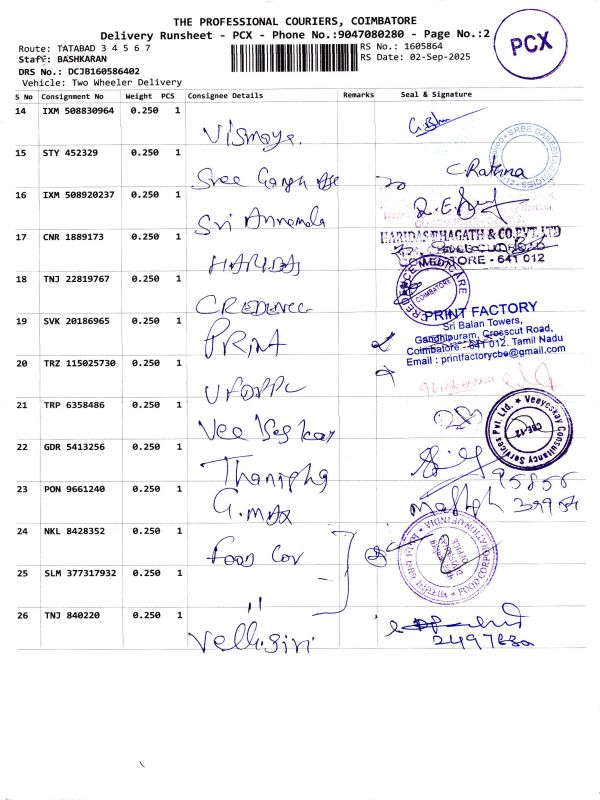 THE PROFESSIONAL COURIERS, COIMBATORE
Delivery Runsheet - PCX - Phone No.:9047080280 - Page No.:2
PCX
Route: TATABAD 3 4 5 6 7
RS No.: 1605864
Staff: BASHKARAN
RS Date: 02-Sep-2025
DRS No.: DCJB160586402
Vehicle: Two Wheeler Delivery
S No Consignment No Weight PCS Consignee Details Remarks Seal & Signature
14 IXM 508830964 0.250 1
Vismaya
15 STY 452329 0.250 1
Sree
C. Rathna
16 IXM 508920237 0.250 1
Sri Annamala
17 CNR 1889173 0.250 1
HARIDAS
HARIDAS BHAGATH & CO.PVT.LTD
COIMBATORE - 641 012
18 TNJ 22819767 0.250 1
CREDENCE
CREDENCE MEDICARE
COIMBATORE
19 SVK 20186965 0.250 1
PRINT
PRINT FACTORY
Sri Balan Towers,
Gandhipuram, Crosscut Road,
Coimbatore - 641 012. Tamil Nadu
Email : printfactorycbe@gmail.com
20 TRZ 115025730 0.250 1
21 TRP 6358486 0.250 1
Vee
Veeyeskay Consultancy Services Pvt. Ltd.
CBE-12
22 GDR 5413256 0.250 1
23 PON 9661240 0.250 1
G. max
24 NKL 8428352 0.250 1
Food Cor
FOOD CORPORATION OF INDIA
25 SLM 377317932 0.250 1
"
26 TNJ 840220 0.250 1
Velligiri